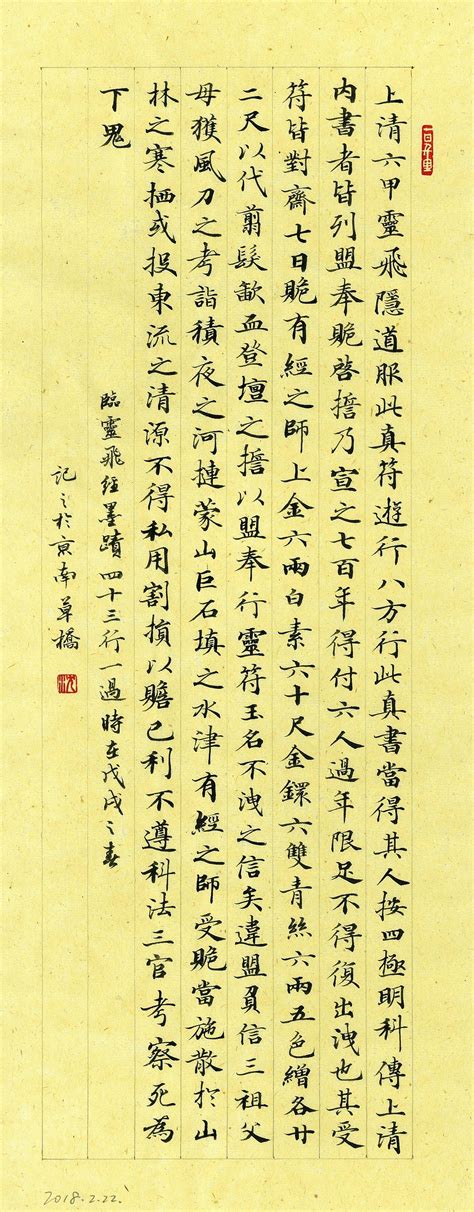 上清六甲靈飛隱道服此真符遊行八方行此真書當得其人按四極明科傳上清
内書者皆列盟奉賝啓擔乃宣之七百年得付六人過年限足不得復出洩也其受
符皆對齋七日賝有經之師上金六兩白素六十尺金鐶六雙青絲六兩五色繒各廿
二尺以代翦髮歃血登壇之擔以盟奉行靈符玉名不洩之信矣違盟負信三祖父
母獲風刀之考詣積夜之河摙蒙山巨石填之水津有經之師受賝當施散於山
林之寒栖或投東流之清源不得私用割損以贍己利不遵科法三官考察死為
下鬼
臨靈飛經墨蹟四十三行一過時在戊戌之春
記之於京南草橋
2018.2.22.